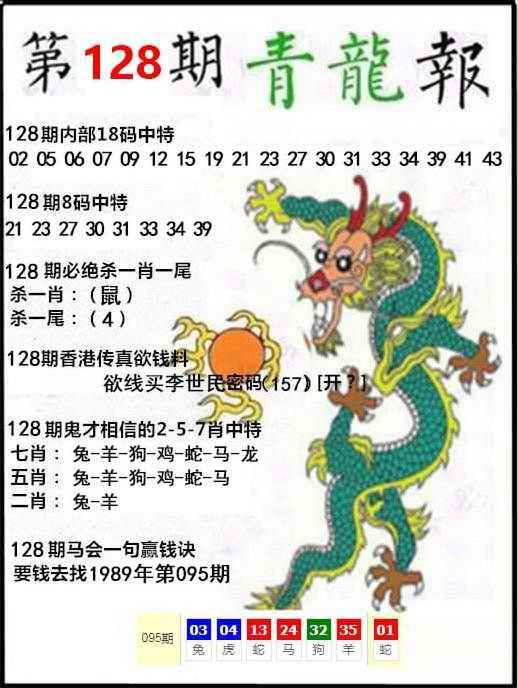 第128期 青龍報
128期内部18码中特
02 05 06 07 09 12 15 19 21 23 27 30 31 33 34 39 41 43
128期8码中特
21 23 27 30 31 33 34 39
128期必绝杀一肖一尾
杀一肖：（鼠）
杀一尾：（4）
128期香港传真欲钱料
欲线买李世民密码(157)[开?]
128期鬼才相信的2-5-7肖中特
七肖：兔-羊-狗-鸡-蛇-马-龙
五肖：兔-羊-狗-鸡-蛇-马
二肖：兔-羊
128期马会一句赢钱诀
要钱去找1989年第095期
095期 03 04 13 24 32 35 01
兔 虎 蛇 马 狗 羊 蛇